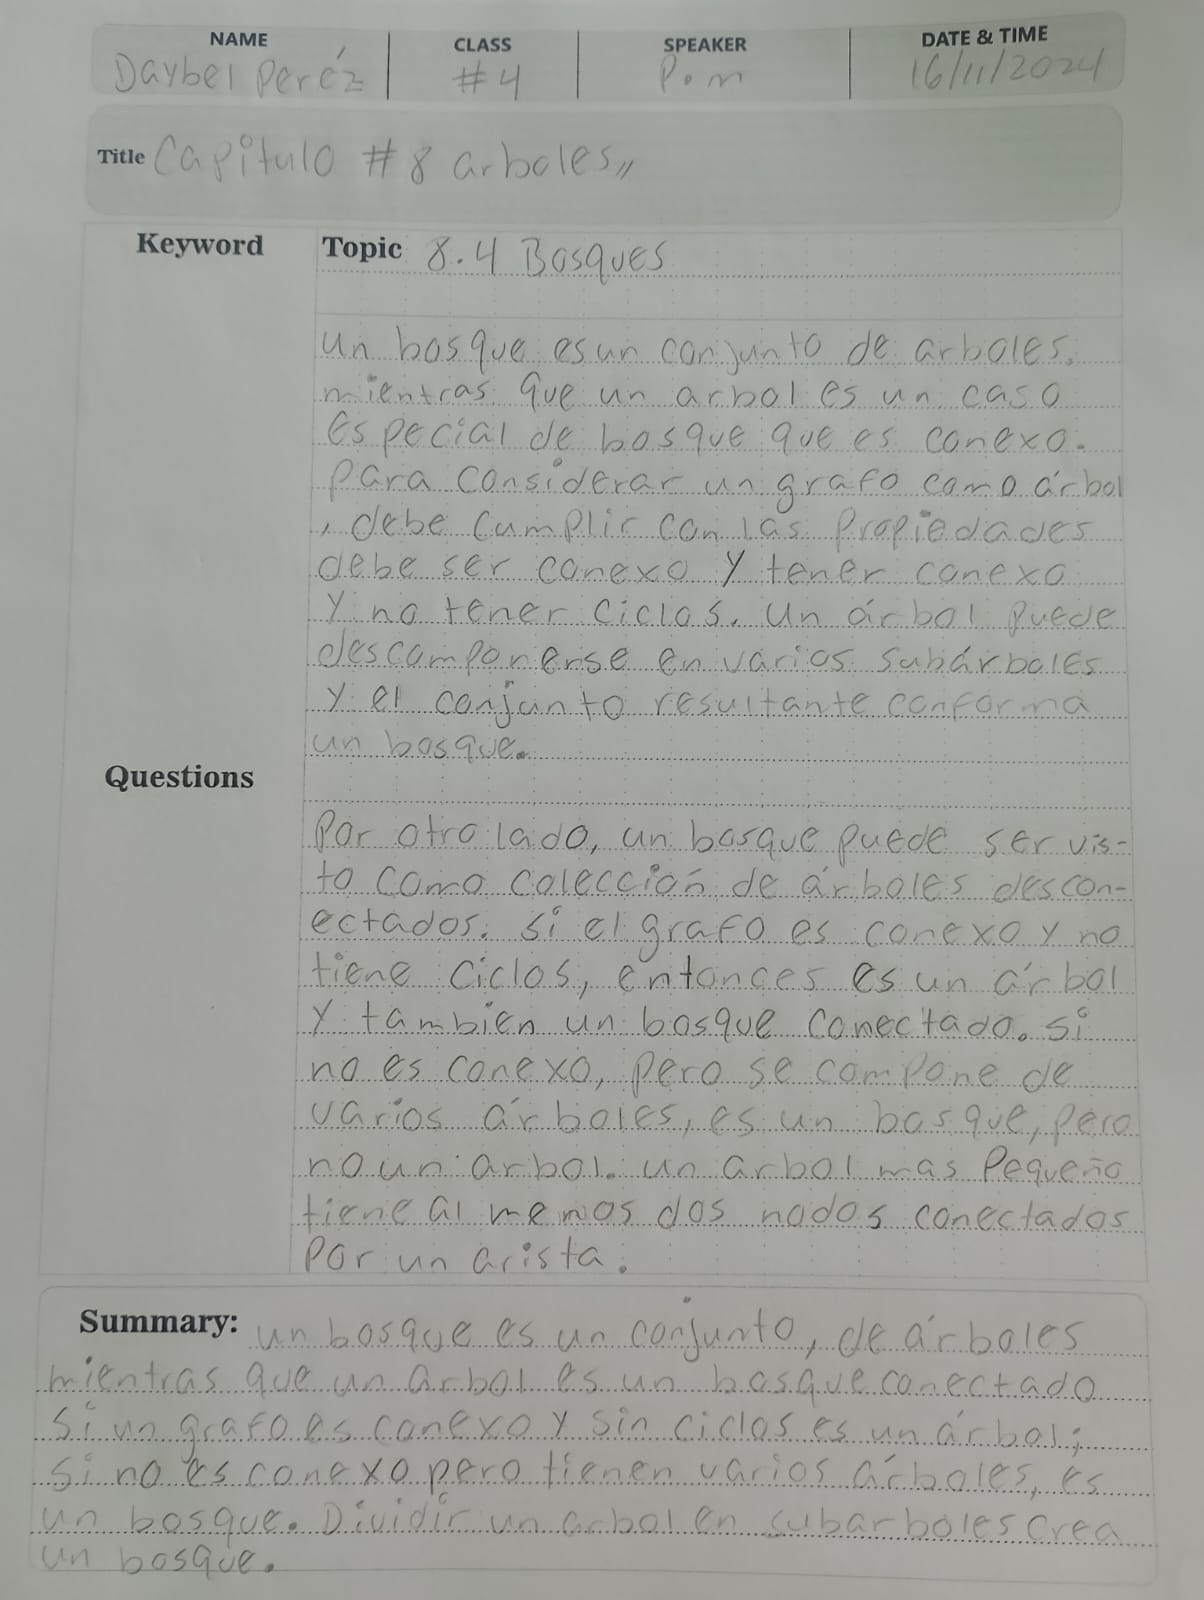 NAME CLASS SPEAKER DATE & TIME
Daybel Peréz #4 P.m 16/11/2024
Title Capitulo #8 arboles,,
Keyword Topic 8.4 Bosques
un bosque es un conjunto de arboles.
mientras que un arbol es un caso
especial de bosque que es conexo.
para considerar un grafo como árbol
, debe cumplir con las propiedades
debe ser conexo y tener conexo
y no tener ciclos. un árbol puede
descomponerse en varios subárboles
y el conjunto resultante conforma
un bosque.
Questions
Por otro lado, un bosque puede ser vis-
to como colección de árboles descon-
ectados. si el grafo es conexo y no
tiene ciclos, entonces es un árbol
y tambien un bosque conectado. si
no es conexo, pero se compone de
varios árboles, es un bosque, pero
no un arbol. un arbol mas pequeño
tiene al menos dos nodos conectados
por un arista.
Summary: un bosque es un conjunto, de árboles
mientras que un arbol es un bosque conectado
si un grafo es conexo y sin ciclos es un árbol;
si no es conexo pero tienen varios árboles, es
un bosque. Dividir un arbol en subarboles crea
un bosque.